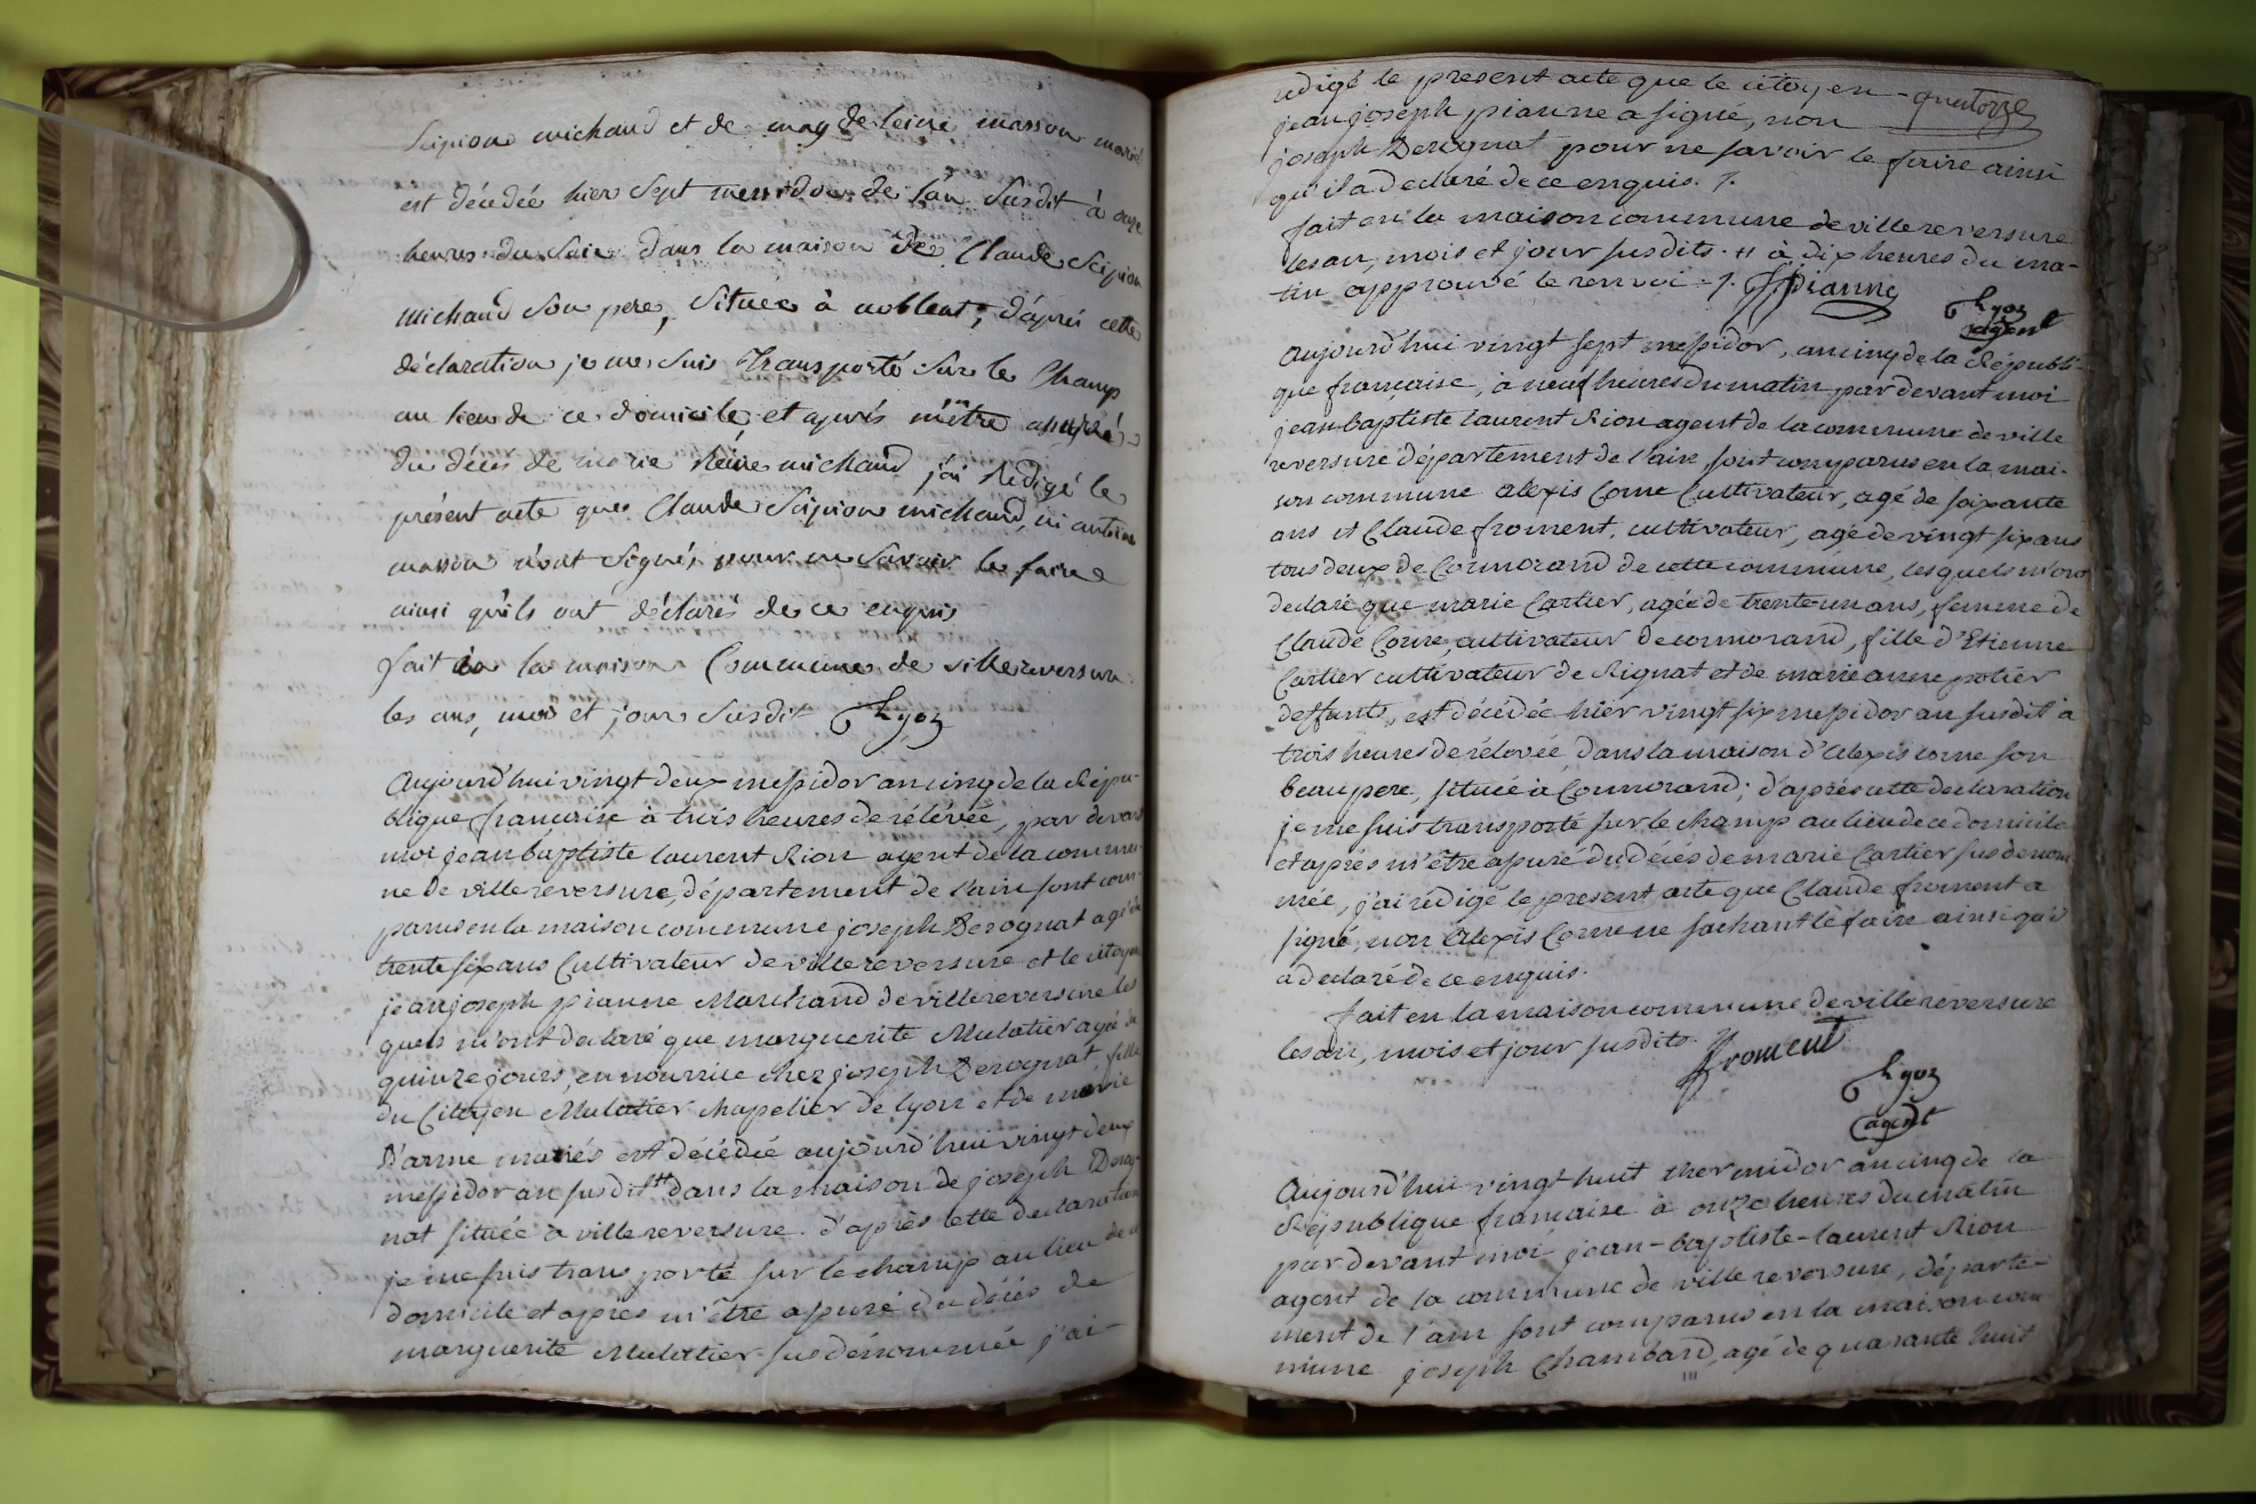 Scipion michaud et de magdeleine masson mariés
est décédée hier Sept messidor de l'an Susdit à onze
heures du Soir dans la maison de Claude Scipion
michaud Son pere, Située à noblent; d'après cette
déclaration je me Suis Transporté Sur le Champ
au lieu de ce domicile et après m'être assuré
du décès de marie Reine michaud j'ai Rédigé le
présent acte que Claude Scipion michaud, ni antoine
masson n'ont Signés pour ne Savoir le faire
ainsi qu'ils ont déclarés de ce enquis
fait en la maison Commune de villereversure
les ans, mois et jour Susdit Ryon
Aujourd'hui vingt deux messidor an cinq de la Répu-
blique francaise à trois heures de rélévée, par devant
moi jean baptiste laurent Rion agent de la commu-
ne de villereversure, département de l'ain sont com-
parus en la maison commune joseph Derognat agé de
trente six ans Cultivateur de villereversure et le citoyen
jean joseph pianne Marchand de villereversure les
quels m'ont declaré que marguerite Mulatier agée de
quinze jours, en nourrice chez joseph Derognat, fille
du Citoyen Mulatier chapelier de lyon et de marie
D'arme mariés est décédée aujourd'hui vingt deux
messidor an susdit # dans la maison de joseph Derog-
nat située à villereversure. d'après cette declaration
je me suis transporté sur le champ au lieu de ce
domicile et après m'être assuré du décés de
marguerite Mulatier susdénommée j'ai
rédigé le present acte que le citoyen - quatorze
jean joseph pianne a signé, non
joseph Derognat pour ne savoir le faire ainsi
qu'il a declaré de ce enquis. /.
fait en la maison commune de villereversure
les an, mois et jour susdits. # à dix heures du ma-
tin approuvé le renvoi. /. JJ Pianne
Ryon
agent
Aujourd'hui vingt sept messidor, an cinq de la Républi-
que française, à neuf heures du matin par devant moi
jean baptiste laurent Rion agent de la commune de ville
reversure département de l'ain, sont comparus en la mai-
son commune alexis Corne Cultivateur, agé de soixante
ans et Claude froment, cultivateur, agé de vingt six ans
tous deux de Cormorand de cette commune, lesquels m'ont
declaré que marie Cartier, agée de trente un ans, femme de
Claude Corne, cultivateur de cormorand, fille d'Etienne
Cartier cultivateur de Rignat et de marie anne potier
deffunts, est décédée hier vingt six messidor an susdit à
trois heures de rélevée, dans la maison d'alexis corne son
beau pere, située à Cormorand; d'après cette declaration
je me suis transporté sur le champ au lieu de ce domicile
et après m'être assuré du décés de marie Cartier susdenom
mée, j'ai rédigé le present acte que Claude froment a
signé, non alexis Corne ne sachant le faire ainsi qu'il
a declaré de ce enquis.
fait en la maison commune de villereversure
les an, mois et jour susdits. froment
Ryon
agent
Aujourd'hui vingt huit thermidor an cinq de la
République francaise à onze heures du matin
par devant moi jean-baptiste-laurent Rion
agent de la commune de villereversure, départe-
ment de l'ain sont comparus en la maison com
mune joseph Chambard, agé de quarante huit